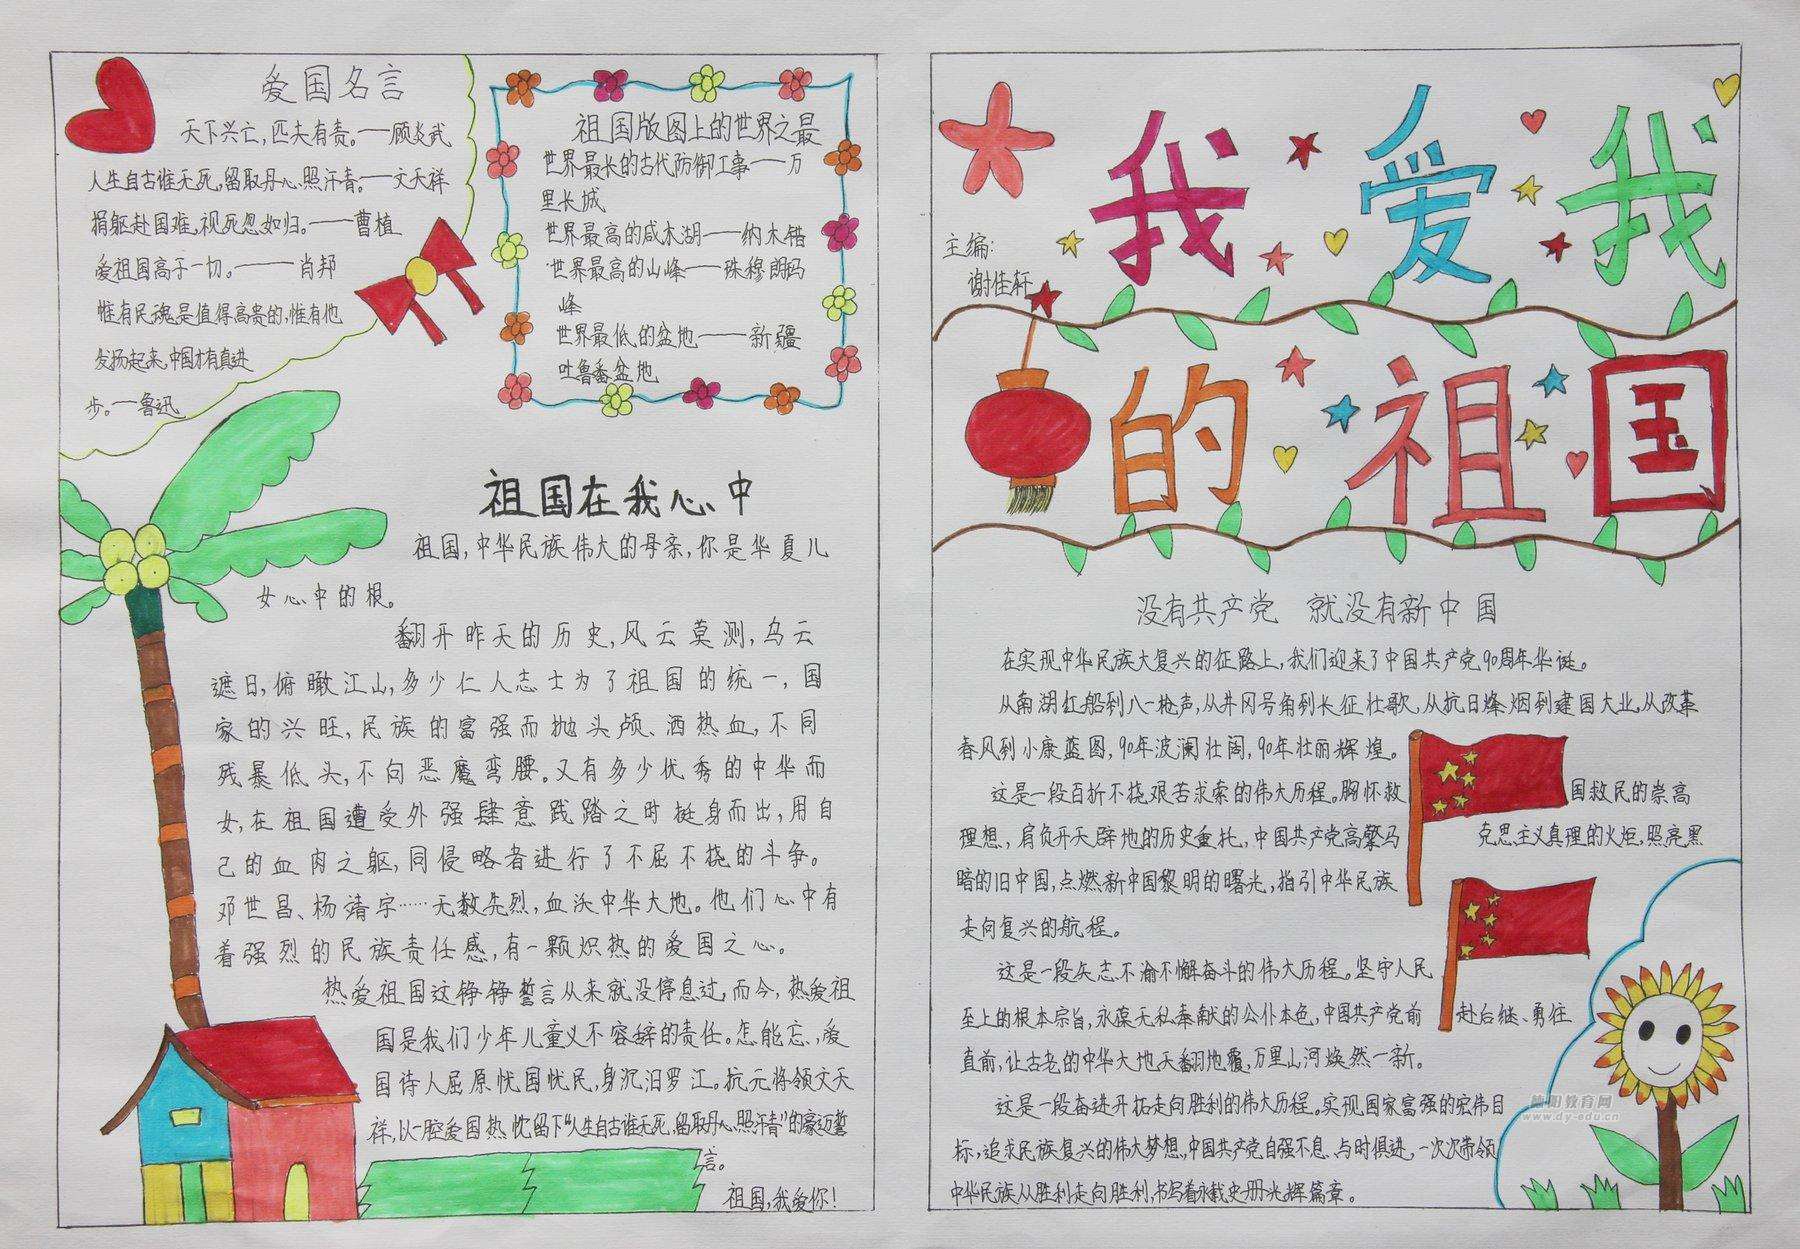 爱国名言
天下兴亡,匹夫有责。——顾炎武
人生自古谁无死,留取丹心照汗青。——文天祥
捐躯赴国难,视死忽如归。——曹植
爱祖国高于一切。——肖邦
惟有民魂是值得高贵的,惟有他
发扬起来,中国才有真进
步。—鲁迅
祖国版图上的世界之最
世界最长的古代防御工事——万
里长城
世界最高的咸水湖——纳木错
世界最高的山峰——珠穆朗玛
峰
世界最低的盆地——新疆
吐鲁番盆地
祖国在我心中
祖国,中华民族伟大的母亲,你是华夏儿
女心中的根。
翻开昨天的历史,风云莫测,乌云
遮日,俯瞰江山,多少仁人志士为了祖国的统一,国
家的兴旺,民族的富强而抛头颅、洒热血,不同
残暴低头,不向恶魔弯腰。又有多少优秀的中华而
女,在祖国遭受外强肆意践踏之时挺身而出,用自
己的血肉之躯,同侵略者进行了不屈不挠的斗争。
邓世昌、杨靖宇……无数先烈,血沃中华大地。他们心中有
着强烈的民族责任感,有一颗炽热的爱国之心。
热爱祖国这铮铮誓言从来就没停息过,而今,热爱祖
国是我们少年儿童义不容辞的责任。怎能忘,爱
国诗人屈原忧国忧民,身沉汨罗江。抗元将领文天
祥,以一腔爱国热忱留下“人生自古谁无死,留取丹心照汗青”的豪迈誓
言。
祖国,我爱你!
我爱我
主编:
谢佳轩
的祖国
没有共产党 就没有新中国
在实现中华民族大复兴的征路上,我们迎来了中国共产党90周年华诞。
从南湖红船到八一枪声,从井冈号角到长征壮歌,从抗日烽烟到建国大业,从改革
春风到小康蓝图,90年波澜壮阔,90年壮丽辉煌。
这是一段百折不挠艰苦求索的伟大历程。胸怀救国救民的崇高
理想,肩负开天辟地的历史重托,中国共产党高擎马克思主义真理的火炬,照亮黑
暗的旧中国,点燃新中国黎明的曙光,指引中华民族
走向复兴的航程。
这是一段矢志不渝不懈奋斗的伟大历程。坚守人民
至上的根本宗旨,永葆无私奉献的公仆本色,中国共产党前赴后继、勇往
直前,让古老的中华大地天翻地覆,万里山河焕然一新。
这是一段奋进开拓走向胜利的伟大历程。实现国家富强的宏伟目
标,追求民族复兴的伟大梦想,中国共产党自强不息、与时俱进,一次次带领
中华民族从胜利走向胜利,书写着永载史册光辉篇章。
德阳教育网
www.dy-edu.cn